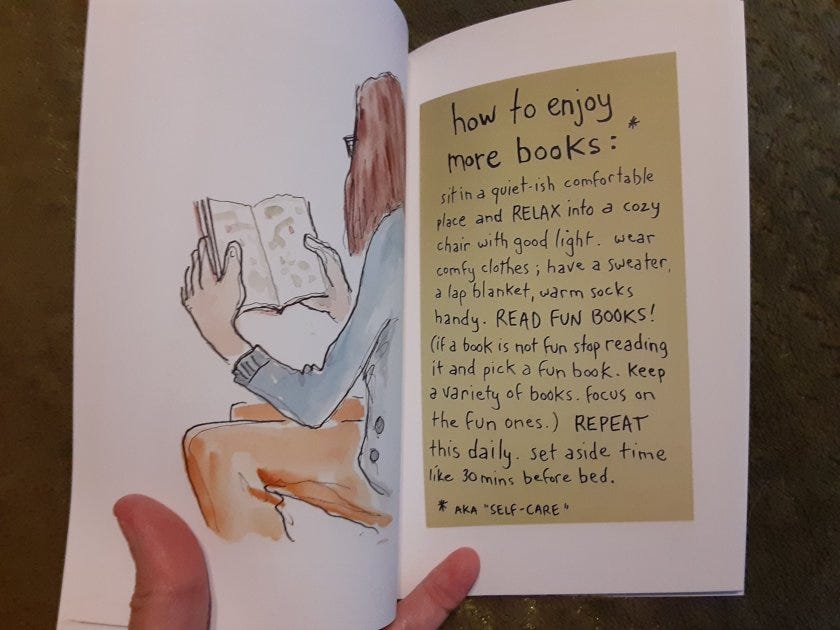 how to enjoy
more books: *
sit in a quiet-ish comfortable
place and RELAX into a cozy
chair with good light. wear
comfy clothes; have a sweater,
a lap blanket, warm socks
handy. READ FUN BOOKS!
(if a book is not fun stop reading
it and pick a fun book. Keep
a variety of books. focus on
the fun ones.) REPEAT
this daily. set aside time
like 30 mins before bed.
* AKA "SELF-CARE"